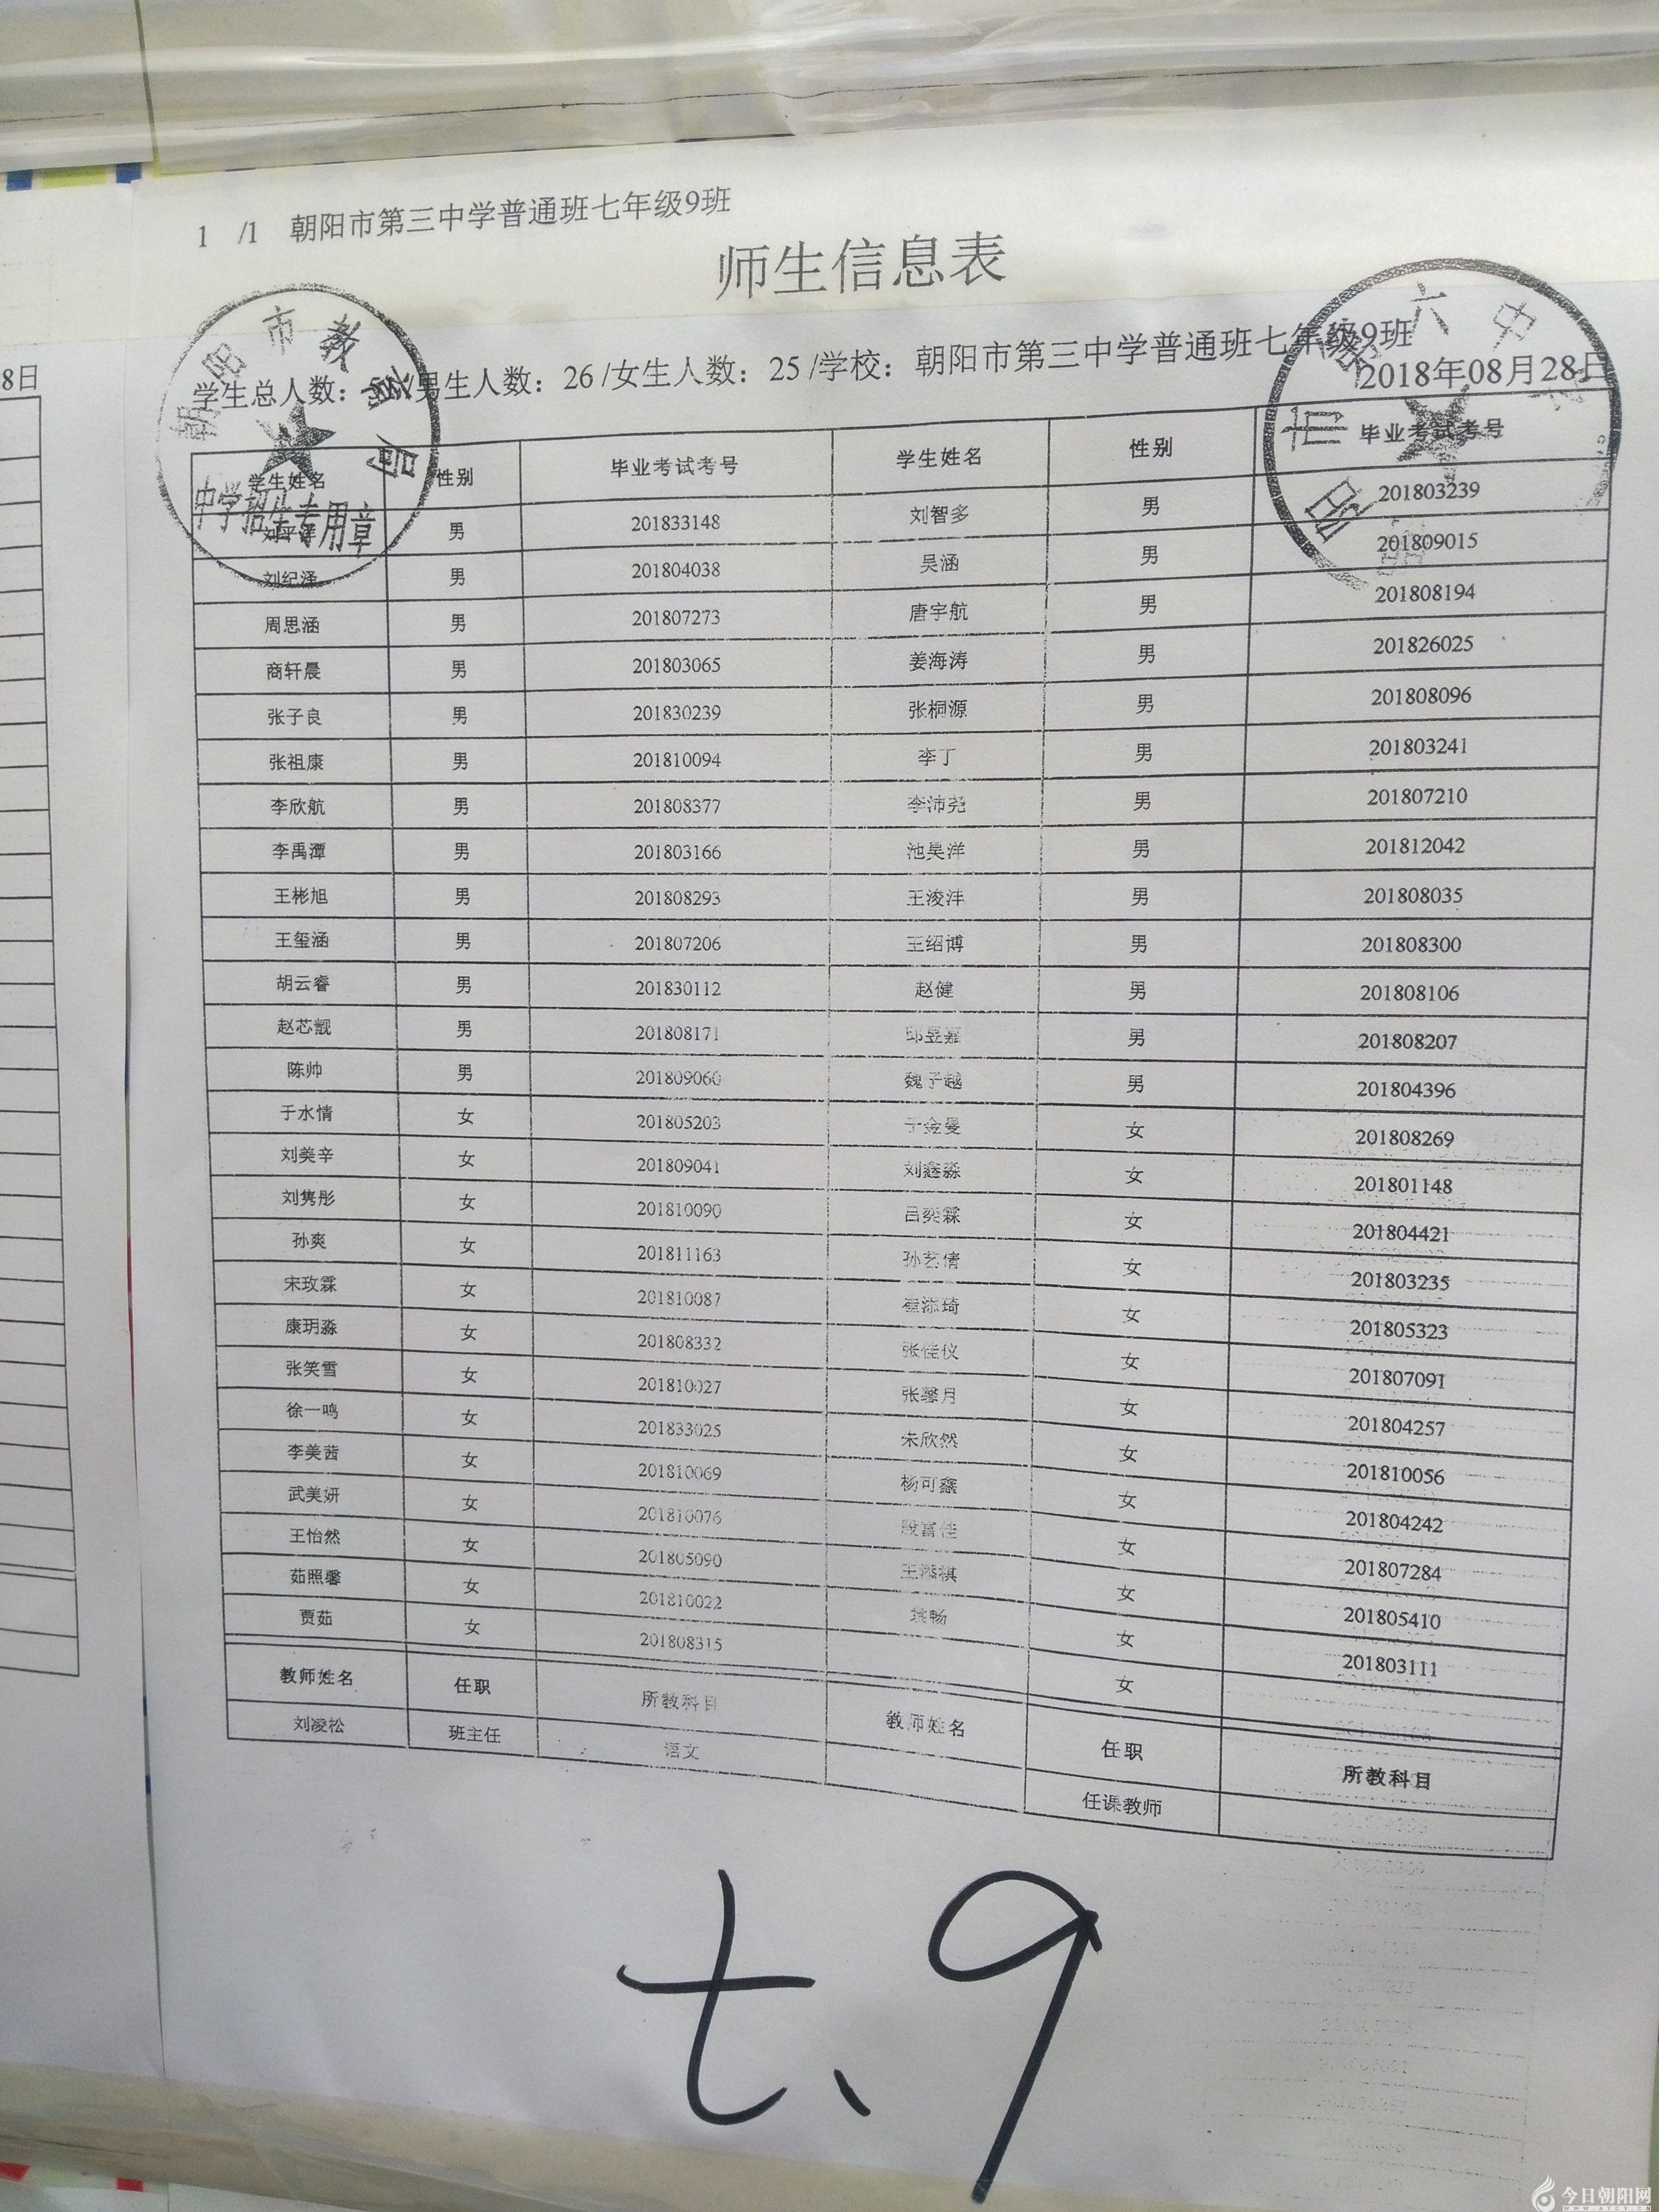 8日
1 /1 朝阳市第三中学普通班七年级9班
师生信息表
学生总人数： /男生人数：26 /女生人数：25 /学校：朝阳市第三中学普通班七年级9班
2018年08月28日
朝阳市教育局
中学招生专用章
学生姓名 性别 毕业考试考号 学生姓名 性别 毕业考试考号
刘平泽 男 201833148 刘智多 男 201803239
刘纪泽 男 201804038 吴涵 男 201809015
周思涵 男 201807273 唐宇航 男 201808194
商轩晨 男 201803065 姜海涛 男 201826025
张子良 男 201830239 张桐源 男 201808096
张祖康 男 201810094 李丁 男 201803241
李欣航 男 201808377 李沛尧 男 201807210
李禹潭 男 201803166 池昊洋 男 201812042
王彬旭 男 201808293 王浚沣 男 201808035
王玺涵 男 201807206 王绍博 男 201808300
胡云睿 男 201830112 赵健 男 201808106
赵芯靓 男 201808171 邱昱嘉 男 201808207
陈帅 男 201809060 魏子越 男 201804396
于水情 女 201805203 于金曼 女 201808269
刘美辛 女 201809041 刘鑫淼 女 201801148
刘隽彤 女 201810090 吕奕霖 女 201804421
孙爽 女 201811163 孙艺倩 女 201803235
宋玫霖 女 201810087 崔添琦 女 201805323
康玥淼 女 201808332 张佳仪 女 201807091
张笑雪 女 201810027 张馨月 女 201804257
徐一鸣 女 201833025 朱欣然 女 201810056
李美茜 女 201810069 杨可鑫 女 201804242
武美妍 女 201810076 段富佳 女 201807284
王怡然 女 201805090 王添祺 女 201805410
茹照馨 女 201810022 袁畅 女 201803111
贾茹 女 201808315 女
教师姓名 任职 所教科目 教师姓名 任职 所教科目
刘凌松 班主任 语文 任课教师
七、9
今日朝阳网